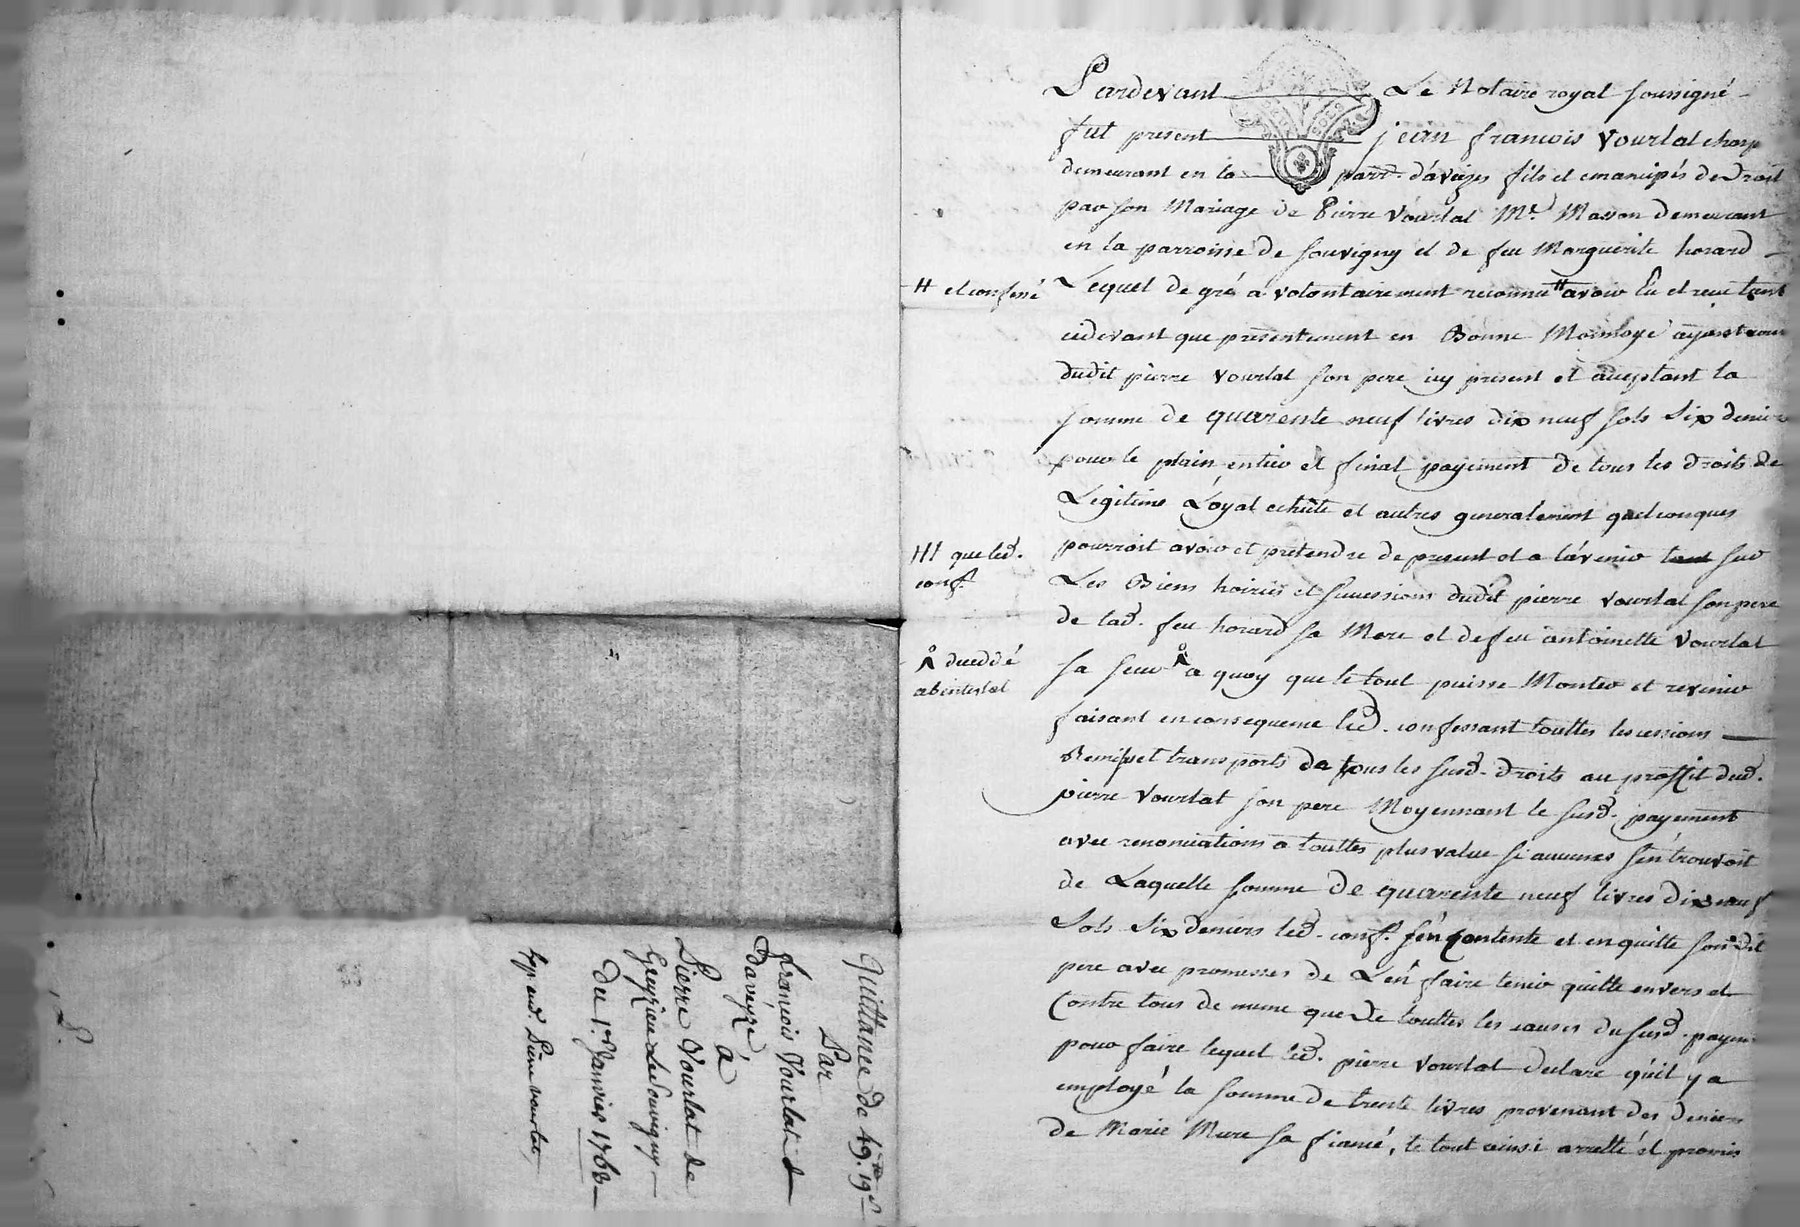 Pardevant Le Notaire royal soussigné
fut present jean francois Vourlat charp
demeurant en la parr. d'aveizes fils et emancipés de droit
par son Mariage de Pierre Vourlat Me. Masson demeurant
en la parroisse de souvigny et de feu Marguerite horard
Lequel de gré a volontairement reconnu # avoir Eu et reçu tant
# et confessé
cidevant que presentement en Bonne Monnoye ayant cours
dudit pierre Vourlat son pere icy present et acceptant la
somme de quarente neuf livres dix neuf sols six deniers
pour le plain entier et final payement de tous les droits de
Legitime Loyal echute et autres generalement quelconques
### que led.
conf.
pourroit avoir et pretendre de present et a l'avenir tant sur
Les Biens hoiries et successions dudit pierre Vourlat son pere
de lad. feu horard sa Mere et de feu antoinette Vourlat
sa seur a quoy que le tout puisse Monter et revenir
decedé
abintestat
faisant en consequence led. confessant touttes les cessions
Remises et transports de tous les susd. droits au proffit dud.
pierre Vourlat son pere Moyennant le susd. payement
avec renonciations a touttes plus value si aucunes s'en trouvoit
de Laquelle somme de quarente neuf livres dix neuf
Sols Six deniers led. conf. s'en contente et en quitte son dit
pere avec promesses de L'en faire tenir quitte envers et
Contre tous de meme que de touttes les causes du susd. payem
pour faire lequel led. pierre Vourlat declare qu'il y a
employé la somme de trente livres provenant des deniers
de Marie Mure sa fiancé, le tout ainsi arretté et promis
Quittance de 49.lt 19s
Par
francois Vourlat d
daveyze
à
Pierre Vourlat de
Greyzieu de Souvigny
du 1er Janvier 1768
Exp. aud. Pierre vourlat